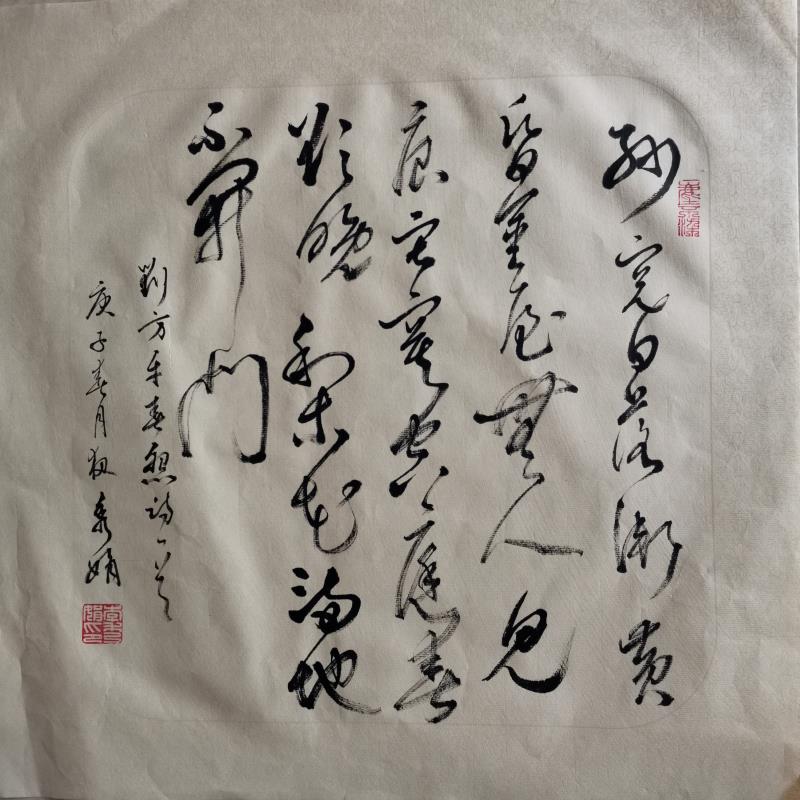 紗窗日落漸黄
昏金屋無人見
痕寂寞空庭春
欲晚梨花滿地
不開門
劉方平春怨詩一首
庚子春月秀娟